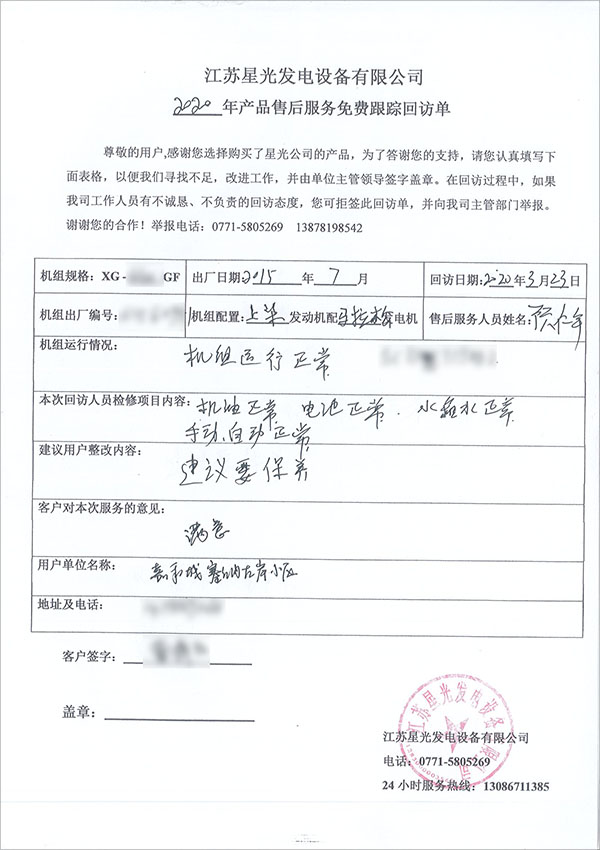 江苏星光发电设备有限公司
2020 年产品售后服务免费跟踪回访单
尊敬的用户,感谢您选择购买了星光公司的产品，为了答谢您的支持，请您认真填写下
面表格，以便我们寻找不足，改进工作，并由单位主管领导签字盖章。在回访过程中，如果
我司工作人员有不诚恳、不负责的回访态度，您可拒签此回访单，并向我司主管部门举报。
谢谢您的合作！举报电话：0771-5805269 13878198542
机组规格：XG - GF 出厂日期:2015 年 7 月 回访日期:2020年3月23日
机组出厂编号: 机组配置：上柴 发动机配 发电机 售后服务人员姓名:
机组运行情况:
机组运行正常
本次回访人员检修项目内容: 机油正常、电池正常、水箱水正常
手动、自动正常
建议用户整改内容:
建议要保养
客户对本次服务的意见:
满意
用户单位名称： 嘉和城塞纳左岸小区
地址及电话:
客户签字:
盖章：
江苏星光发电设备有限公司
江苏星光发电设备有限公司
电话：0771-5805269
24 小时服务热线：13086711385